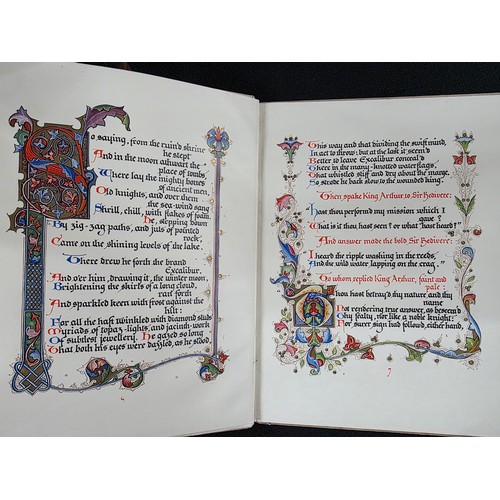 So saying, from the ruin'd shrine
he stept
And in the moon athwart the
place of tombs,
Where lay the mighty bones
of ancient men,
Old knights, and over them
the sea-wind sang
Shrill, chill, with flakes of foam.
He, stepping down
By zig-zag paths, and juts of pointed
rock,
Came on the shining levels of the lake.
There drew he forth the brand
Excalibur,
And o'er him, drawing it, the winter moon,
Brightening the skirts of a long cloud,
ran forth
And sparkled keen with frost against the
hilt:
For all the haft twinkled with diamond studs
Myriads of topaz-lights, and jacinth-work
Of subtlest jewellery. He gazed so long
That both his eyes were dazzled, as he stood,
This way and that dividing the swift mind,
In act to throw: but at the last it seem'd
Better to leave Excalibur conceal'd
There in the many-knotted waterflags,
That whistled stiff and dry about the marge.
So strode he back slow to the wounded king.
Then spake King Arthur to Sir Bedivere:
Hast thou perform'd my mission which I
gave?
What is it thou hast seen? or what hast heard?"
And answer made the bold Sir Bedivere:
I heard the ripple washing in the reeds,
And the wild water lapping on the crag."
To whom replied King Arthur, faint and
pale:
Thou hast betray'd thy nature and thy
name
Not rendering true answer, as beseem'd
Thy fealty, nor like a noble knight:
For surer sign had follow'd, either hand,
7